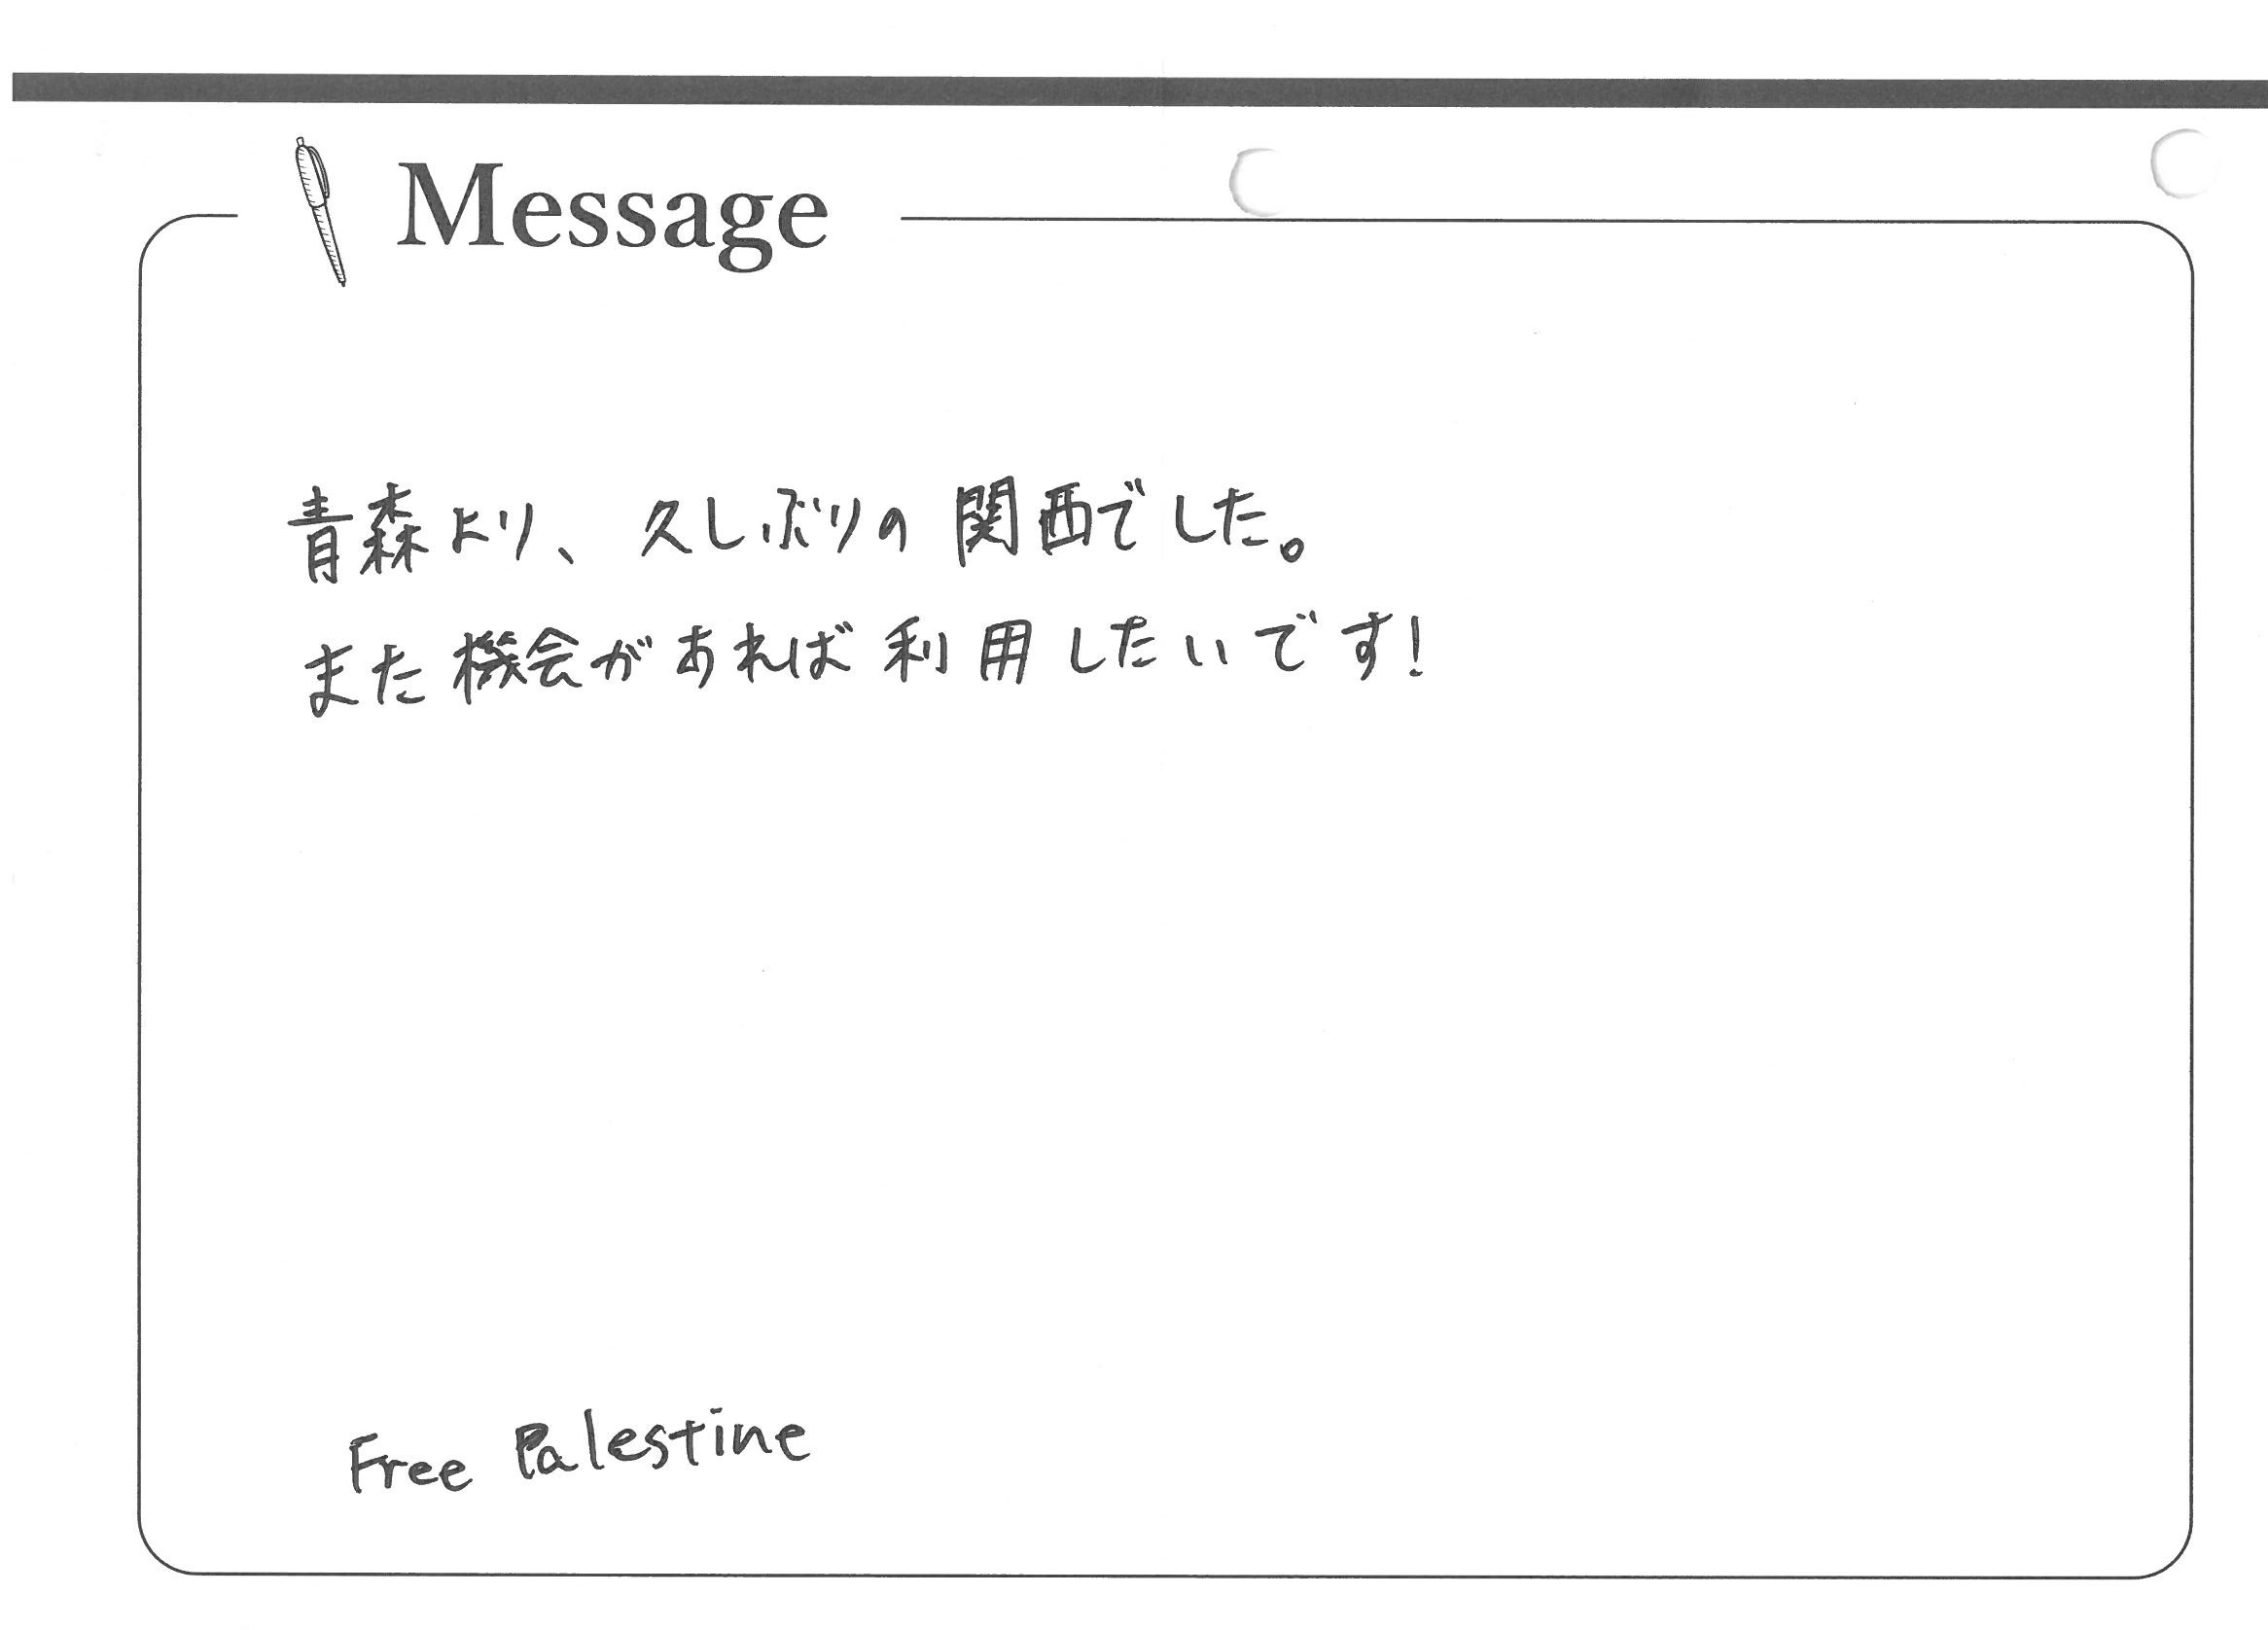 Message
青森より、久しぶりの関西でした。
また機会があれば利用したいです!
Free Palestine